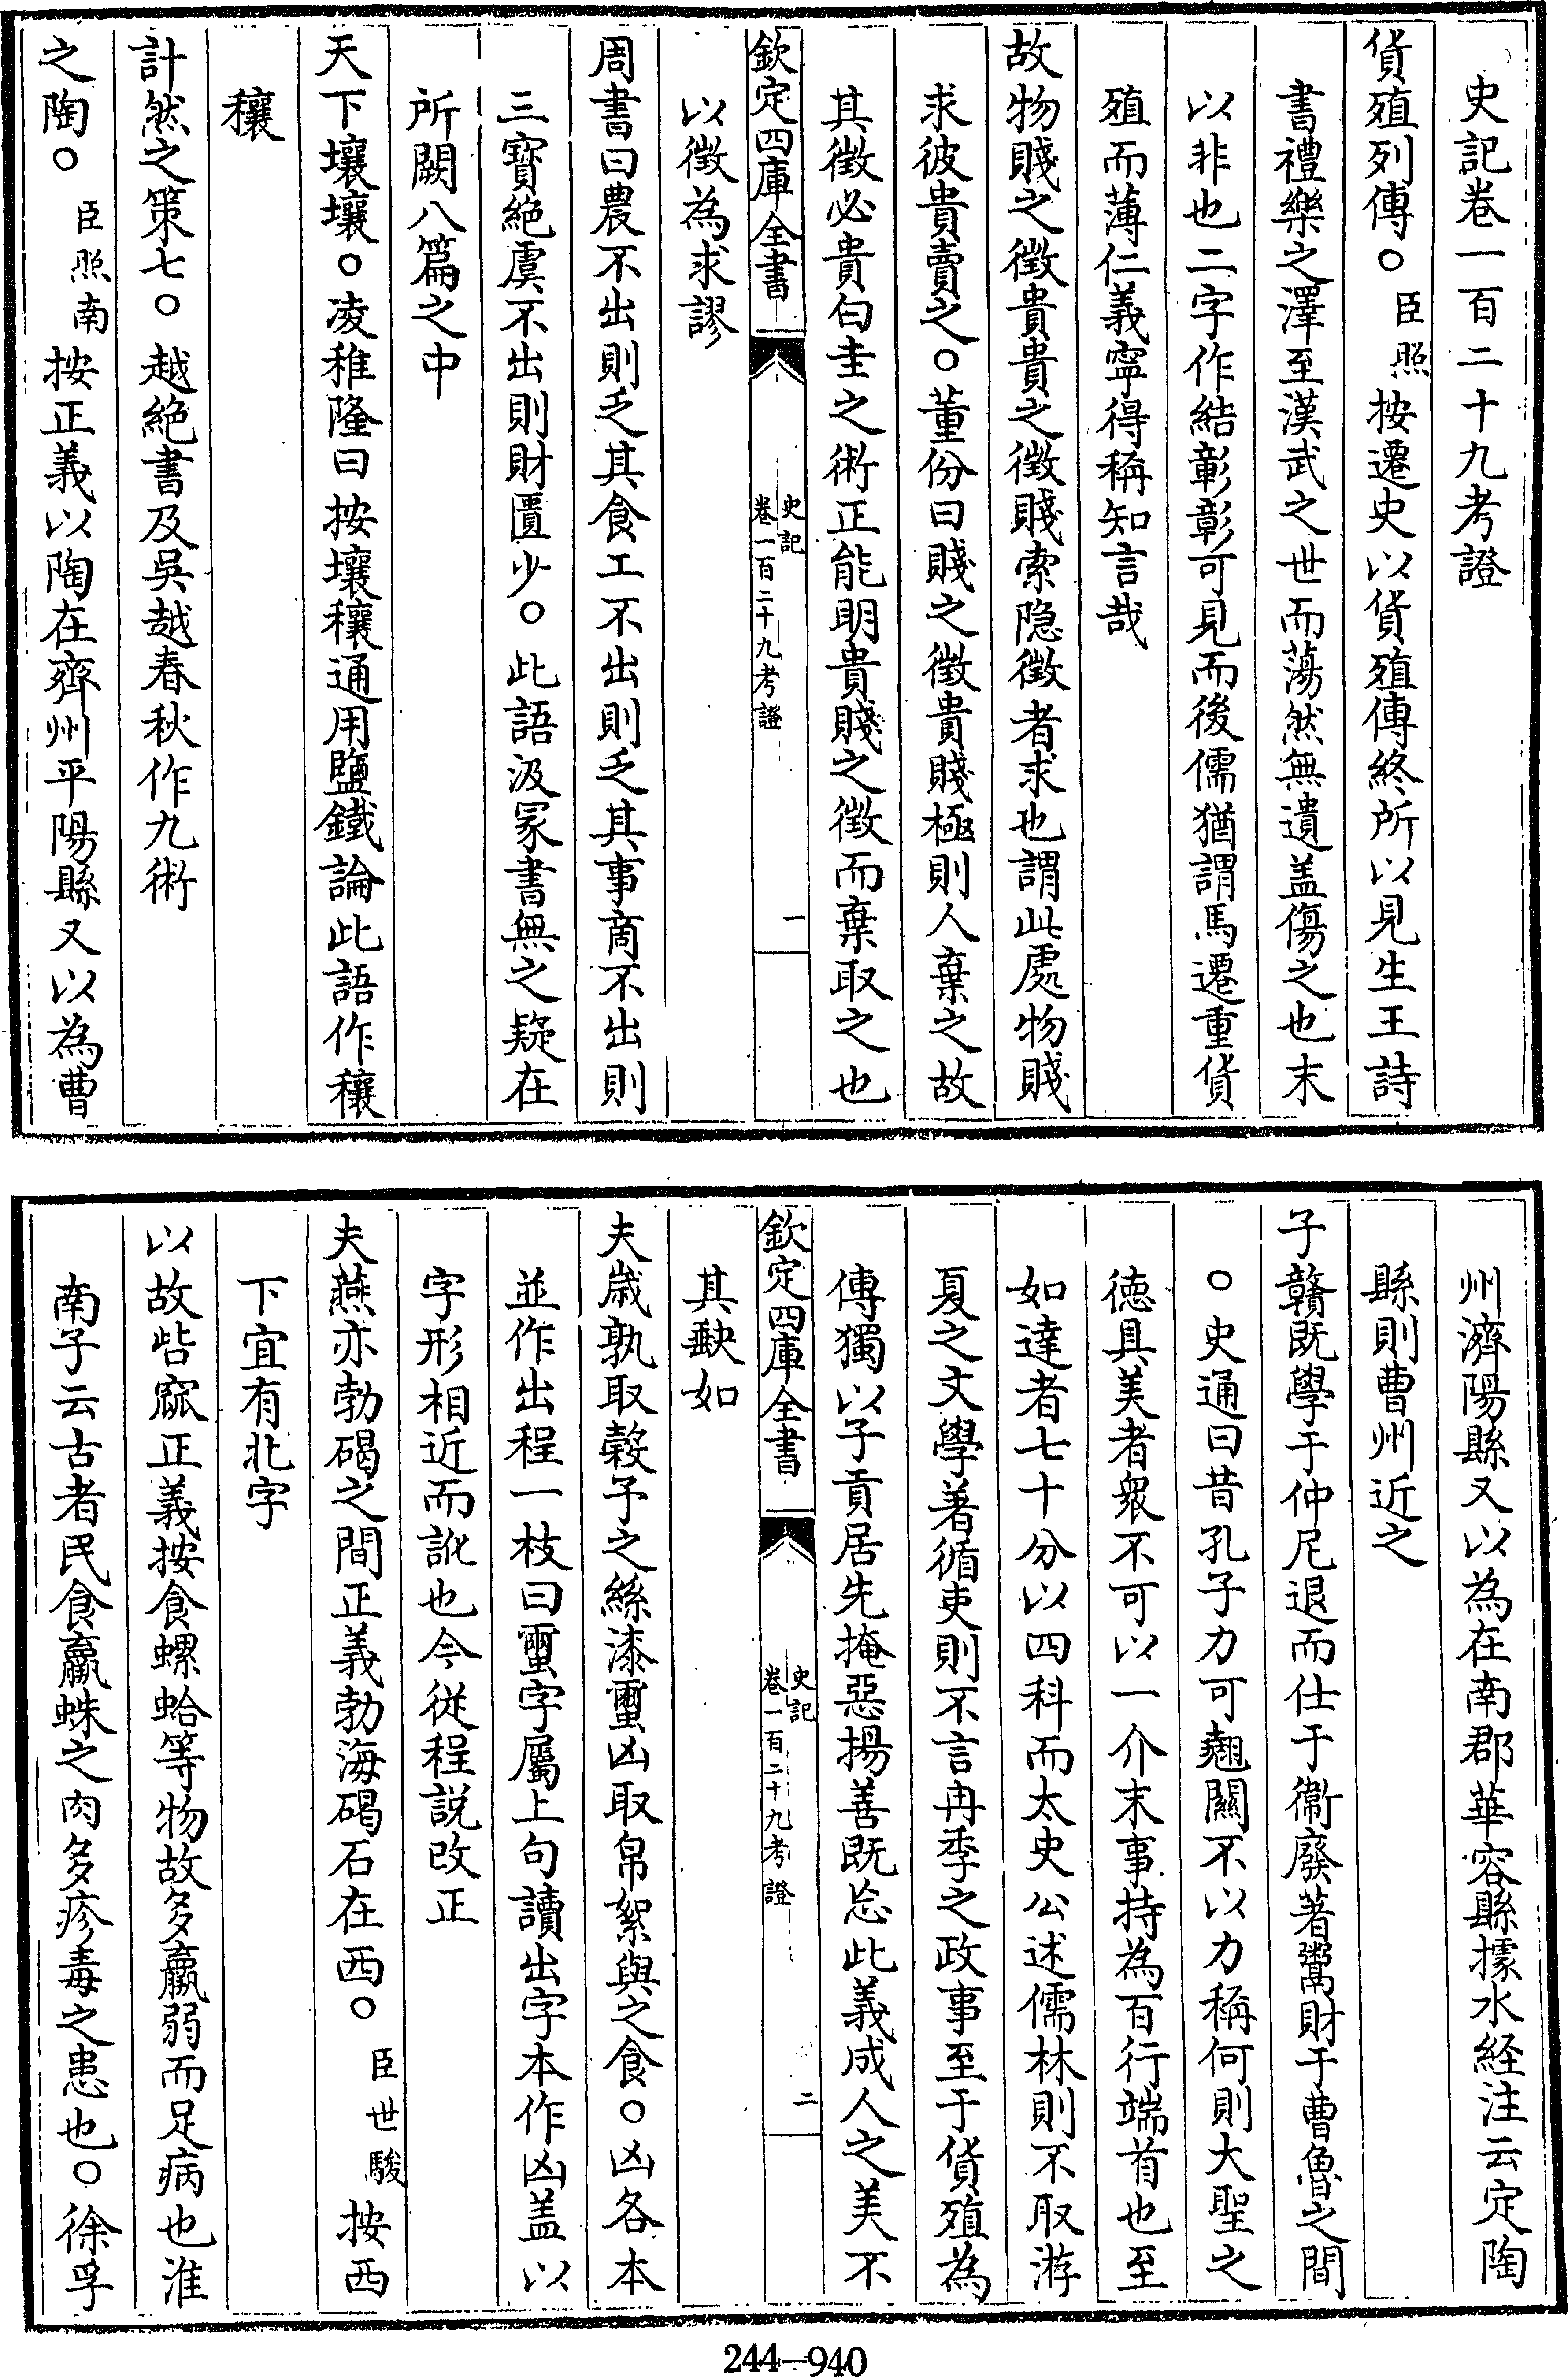 史記卷一百二十九考證
貨殖列傳○臣照按遷史以貨殖傳終所以見生王詩
書禮樂之澤至漢武之世而蕩然無遺盖傷之也末
以非也二字作結彰彰可見而後儒猶謂馬遷重貨
殖而薄仁義寧得稱知言哉
故物賤之徵貴貴之徵賤索隐徵者求也謂此處物賤
求彼貴賣之○董份曰賤之徵貴賤極則人棄之故
其徵必貴白圭之術正能明貴賤之徵而棄取之也
欽定四庫全書
史記
卷一百二十九考證
一
以徵為求謬
周書曰農不出則乏其食工不出則乏其事商不出則
三寳絶虞不出則財匱少○此語汲冢書無之疑在
所闕八篇之中
天下壤壤○凌稚隆曰按壤穰通用鹽鐵論此語作穰
穰
計然之策七○越絶書及吳越春秋作九術
之陶○臣照南按正義以陶在齊州平陽縣又以為曹
州濟陽縣又以為在南郡華容縣據水經注云定陶
縣則曹州近之
子贛既學于仲尼退而仕于衞廢著鬻財于曹魯之間
○史通曰昔孔子力可翹關不以力稱何則大聖之
德具美者衆不可以一介末事持為百行端首也至
如達者七十分以四科而太史公述儒林則不取游
夏之文學著循吏則不言冉季之政事至于貨殖為
傳獨以子貢居先掩惡揚善既忘此義成人之美不
欽定四庫全書
史記
卷一百二十九考證
二
其缺如
夫歲孰取榖予之絲漆蠒凶取帛絮與之食○凶各本
並作出程一枝曰蠒字屬上句讀出字本作凶盖以
字形相近而訛也今從程説改正
夫燕亦勃碣之間正義勃海碣石在西○臣世駿按西
下宜有北字
以故呰窳正義按食螺蛤等物故多羸弱而足病也淮
南子云古者民食蠃蛖之肉多疹毒之患也○徐孚
244-940